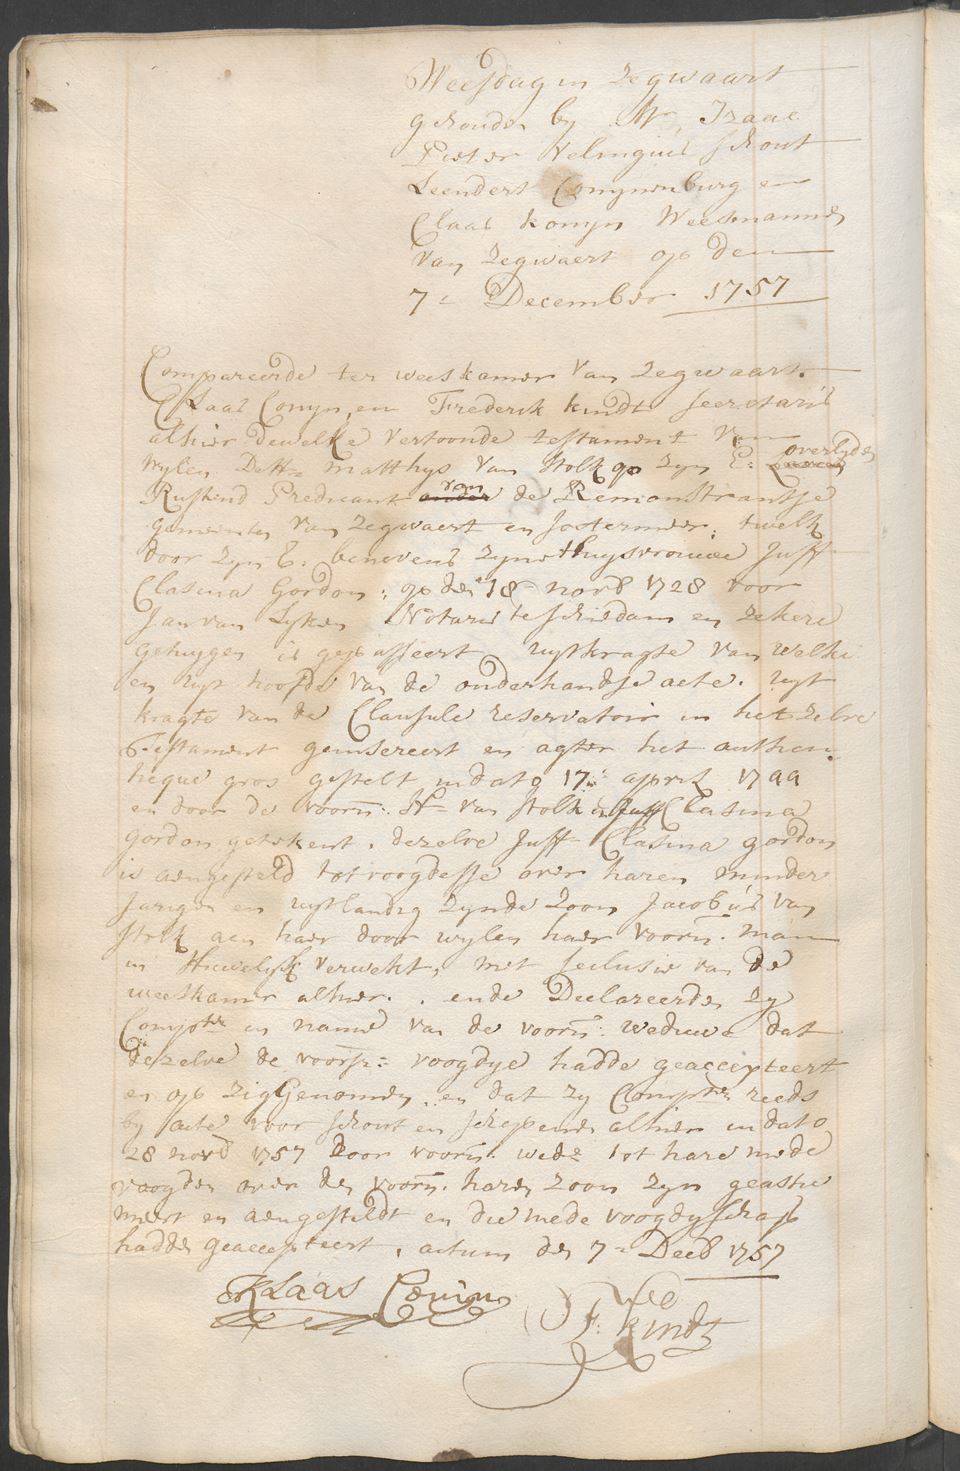 Weesdag in Zegwaart
gehouden by Mr. Izaac
Pieter Velingius schout
Leendert Conynenburg en
Claas Konijn Weesmannen
van Zegwaert op den
7e December 1757
Compareerde ter weeskamer van Zegwaart.
Klaas Conijn, en Frederik Kindt secretaris
alhier dewelke vertoonde testament van
wylen De Hr. Matthys van Stolk op zyn E. overlyden
Rustend Predicant van de Remonstrantse
gemeenten van Zegwaert en Soetermeer, twelk
door zyn E. benevens zyne Huysvrouwe Juff.
Clasina Gordon, op den 18e novb 1728 voor
Jan van Lyken Notaris te Schiedam en zekere
getuygen is gepasseert, uytkragte van welke
en uyt hoofde van de onderhandse acte, uyt
kragte van de Clausule reservatoir in het zelve
Testament geinsereert en agter het authen
tieque gros gestelt in dato 17e april 1744
en door de voorn. Hr. van Stolk en Juff Clasina
gordon getekent, dezelve Juff Clasina gordon
is aengesteld tot voogdesse over haren minder
jarigen en uytlandig zynde zoon Jacobus van
Stolk aen haer door wylen haer voorn. man
in Huwelyk verwekt, met seclusie van de
weeskamer alhier. ende Declareerden zy
Compten in name van de voorn. weduwe dat
dezelve de voorsz: voogdye hadde geaccepteert
en op zig Genomen, en dat zy Compten reeds
by acte voor schout en schepenen alhier in dato
28 novb 1757 door voorn. wede tot hare mede
voogden over den voorn. haren zoon zyn geassu
meert en aengesteldt en die mede voogdyschap
hadden geaccepteert, actum den 7e Decb 1757
Klaas Conijn
F. Kindt